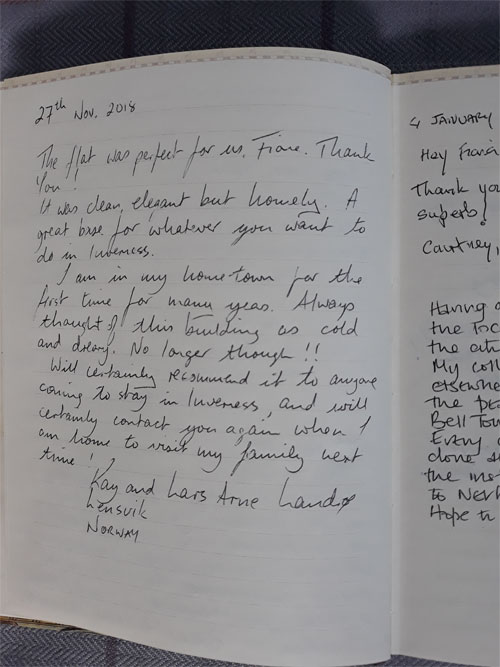 27th Nov. 2018
The flat was perfect for us, Fione. Thank
You!
It was clean, elegant but homely. A
great base for whatever you want to
do in Inverness.
I am in my home-town for the
first time for many years. Always
thought of this building as cold
and dreary. No longer though!!
Will certainly recommend it to anyone
coming to stay in Inverness, and will
certainly contact you again when I
am home to visit my family next
time!
Kay and Lars Arne Landrø
Lensvik
NORWAY
4 JANUARY
Hey
Thank you
superb!
Courtney,
Having
the
the
My
elsewhere
the
Bell
Every
done
the
to
Hope